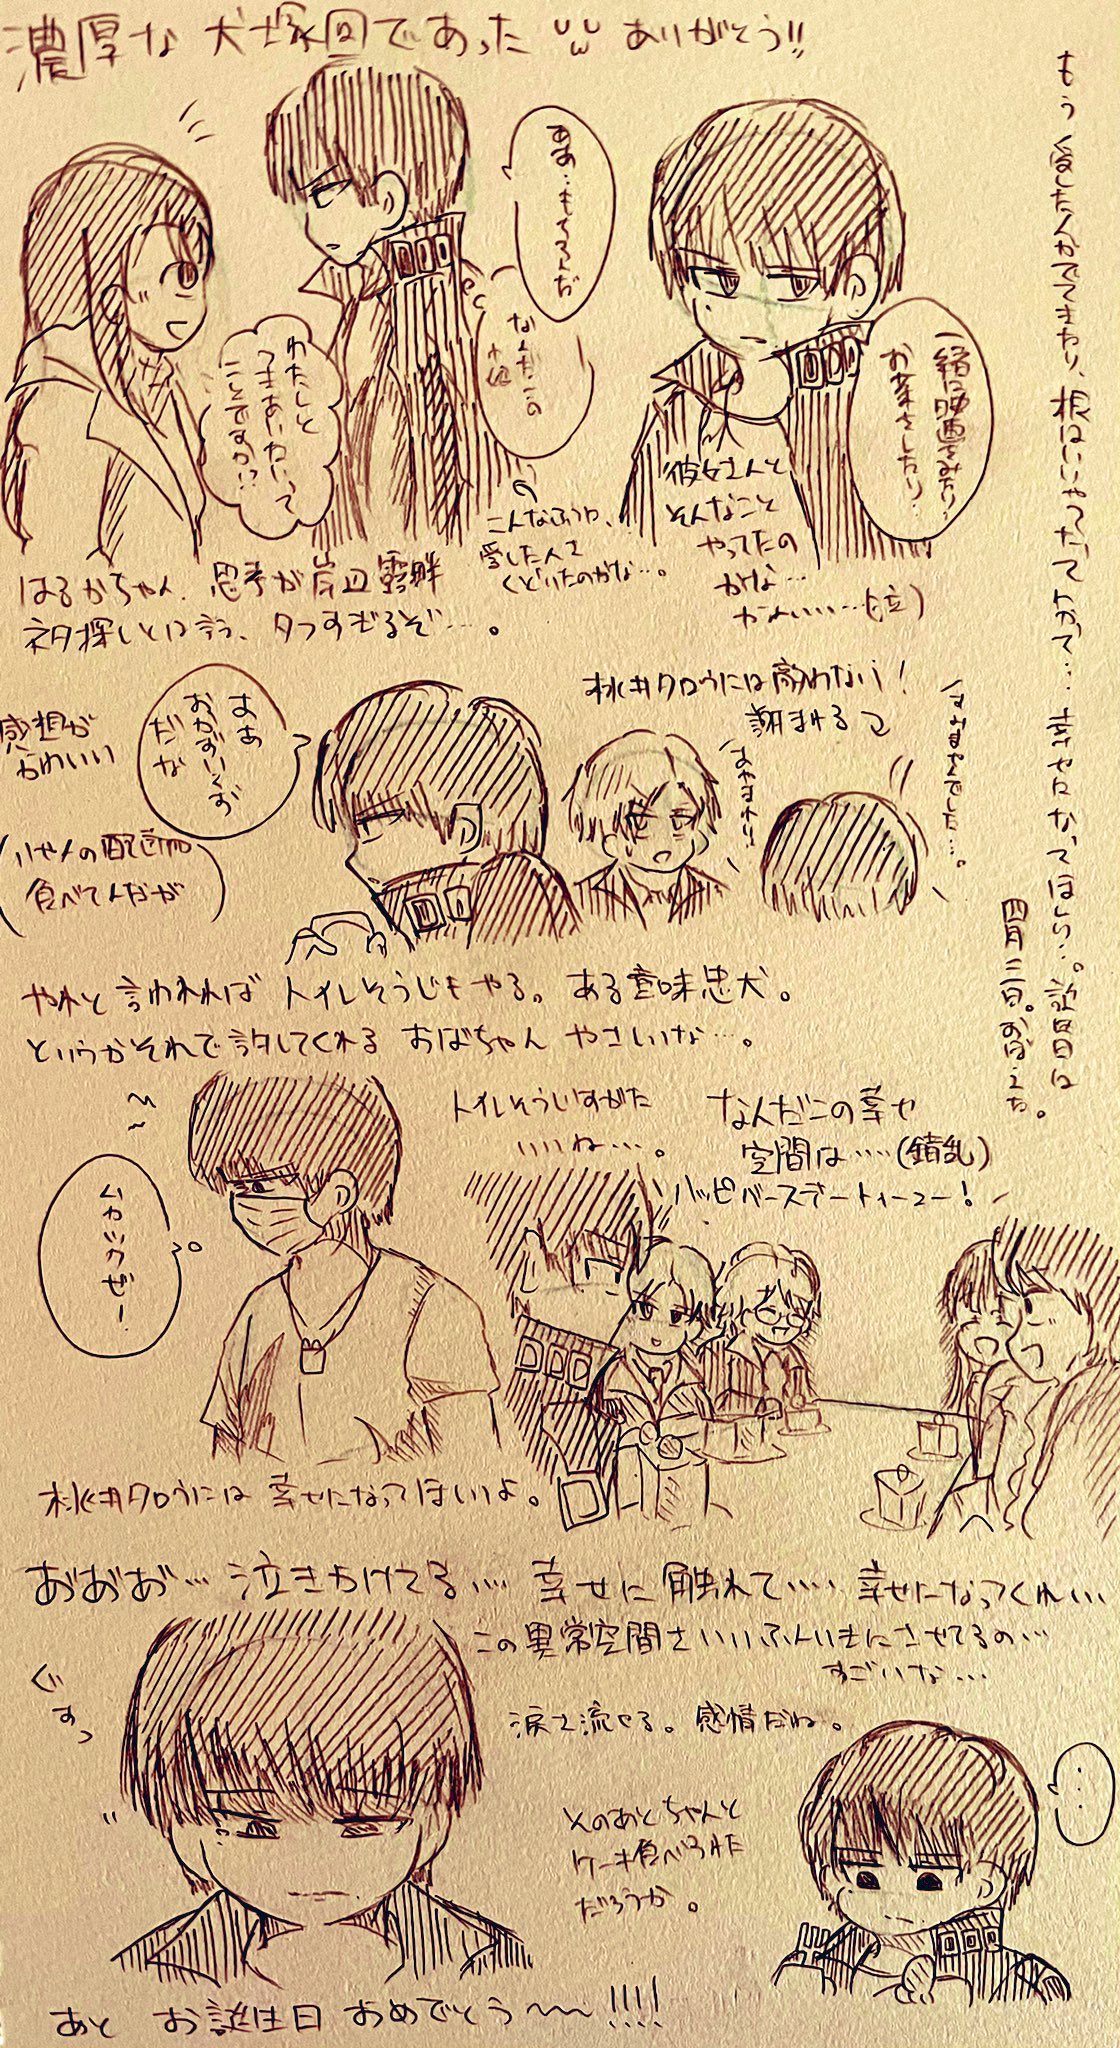 濃厚な 犬塚回であった ありがとう!!
もう 愛した人がでてきたり、根はいいやつだってわかって… 幸せになってほしい…。誕生日は
四月二日。おぼえた。
一緒に映画をみたり…
お茶をしたり…
ああ…もちろんだ
なんだこの
わたしと
つきあいたいって
ことですか!?
彼女さんと
そんなこと
やってたの
かな…
かわいい…(泣)
こんなふうに、
愛した人を
くどいたのかな…。
はるかちゃん、思考が岸辺露伴
ネタ探しとは言う、タフすぎるぞ…。
桃井タロウには敵わない!
感想が
かわいい
まあ
おかずいくず
だな
(いや人の配達物
食べてんだが)
すみませんでした…。
やれと言われれば トイレそうじもやる。ある意味忠犬。
というかそれで許してくれる おばちゃん やさしいな…。
トイレそうじすがた
いいね…。
ムカツクぜー
なんだこの幸せ
空間は……(錯乱)
ハッピバースデートゥーユー!
桃井タロウには 幸せになってほしいよ。
あ゛あ゛あ゛… 泣きかけてる… 幸せに触れて…… 幸せになってくれ…
この異常空間をいいふんいきにさせてるの…
すごいな…
ぐすっ
涙を流せる。感情だね。
そのあとちゃんと
ケーキ食べられた
だろうか。
…
あと お誕生日 おめでとう〜!!!!